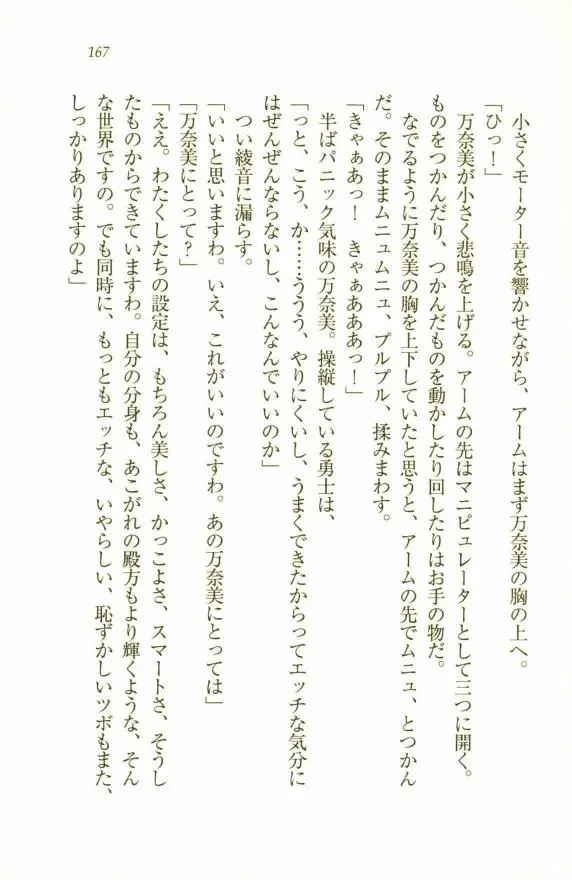 167
小さくモーター音を響かせながら、アームはまず万奈美の胸の上へ。
「ひっ！」
万奈美が小さく悲鳴を上げる。アームの先はマニピュレーターとして三つに開く。
ものをつかんだり、つかんだものを動かしたり回したりはお手の物だ。
なでるように万奈美の胸を上下していたと思うと、アームの先でムニュ、とつかん
だ。そのままムニュムニュ、プルプル、揉みまわす。
「きゃぁあっ！　きゃぁあああっ！」
半ばパニック気味の万奈美。操縦している勇士は、
「っと、こう、か……ううう、やりにくいし、うまくできたからってエッチな気分に
はぜんぜんならないし、こんなんでいいのか」
つい綾音に漏らす。
「いいと思いますわ。いえ、これがいいのですわ。あの万奈美にとっては」
「万奈美にとって？」
「ええ。わたくしたちの設定は、もちろん美しさ、かっこよさ、スマートさ、そうし
たものからできていますわ。自分の分身も、あこがれの殿方もより輝くような、そん
な世界ですの。でも同時に、もっともエッチな、いやらしい、恥ずかしいツボもまた、
しっかりありますのよ」